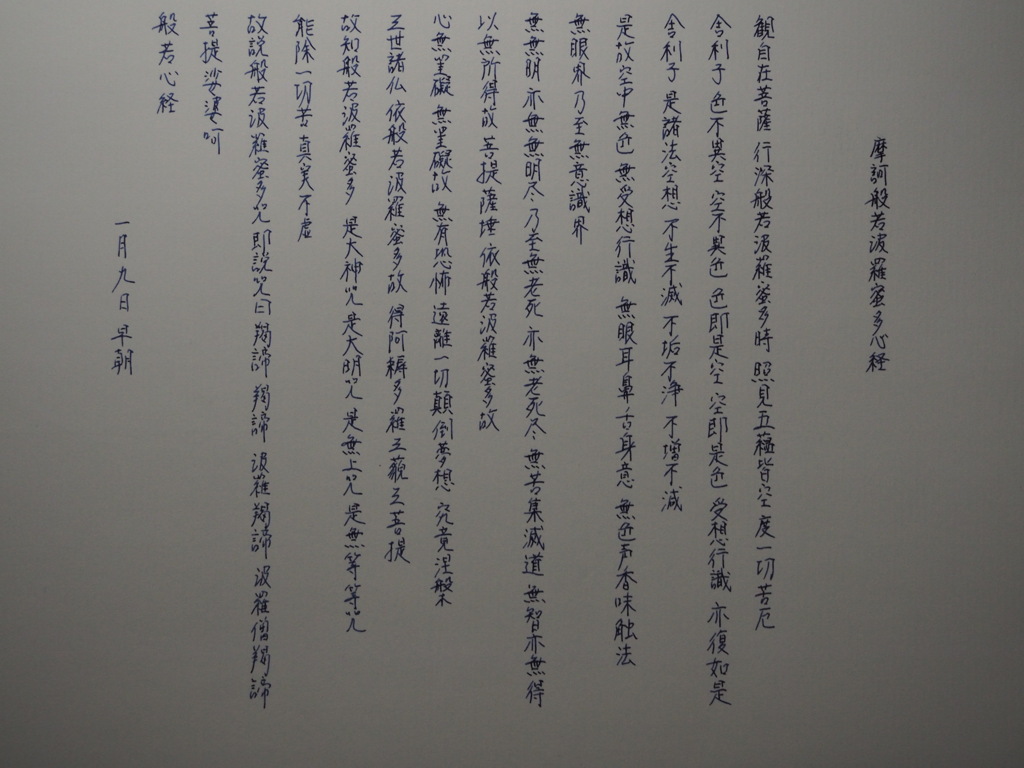 摩訶般若波羅蜜多心経
観自在菩薩 行深般若波羅蜜多時 照見五蘊皆空 度一切苦厄
舎利子 色不異空 空不異色 色即是空 空即是色 受想行識 亦復如是
舎利子 是諸法空想 不生不滅 不垢不浄 不増不減
是故空中 無色 無受想行識 無眼耳鼻舌身意 無色声香味触法
無眼界乃至無意識界
無無明 亦無無明尽 乃至無老死 亦無老死尽 無苦集滅道 無智亦無得
以無所得故 菩提薩埵 依般若波羅蜜多故
心無罣礙 無罣礙故 無有恐怖 遠離一切顛倒夢想 究竟涅槃
三世諸仏 依般若波羅蜜多故 得阿耨多羅三藐三菩提
故知般若波羅蜜多 是大神咒 是大明咒 是無上咒 是無等等咒
能除一切苦 真実不虚
故説般若波羅蜜多咒 即説咒曰 羯諦 羯諦 波羅羯諦 波羅僧羯諦
菩提娑婆呵
般若心経
一月九日 早朝